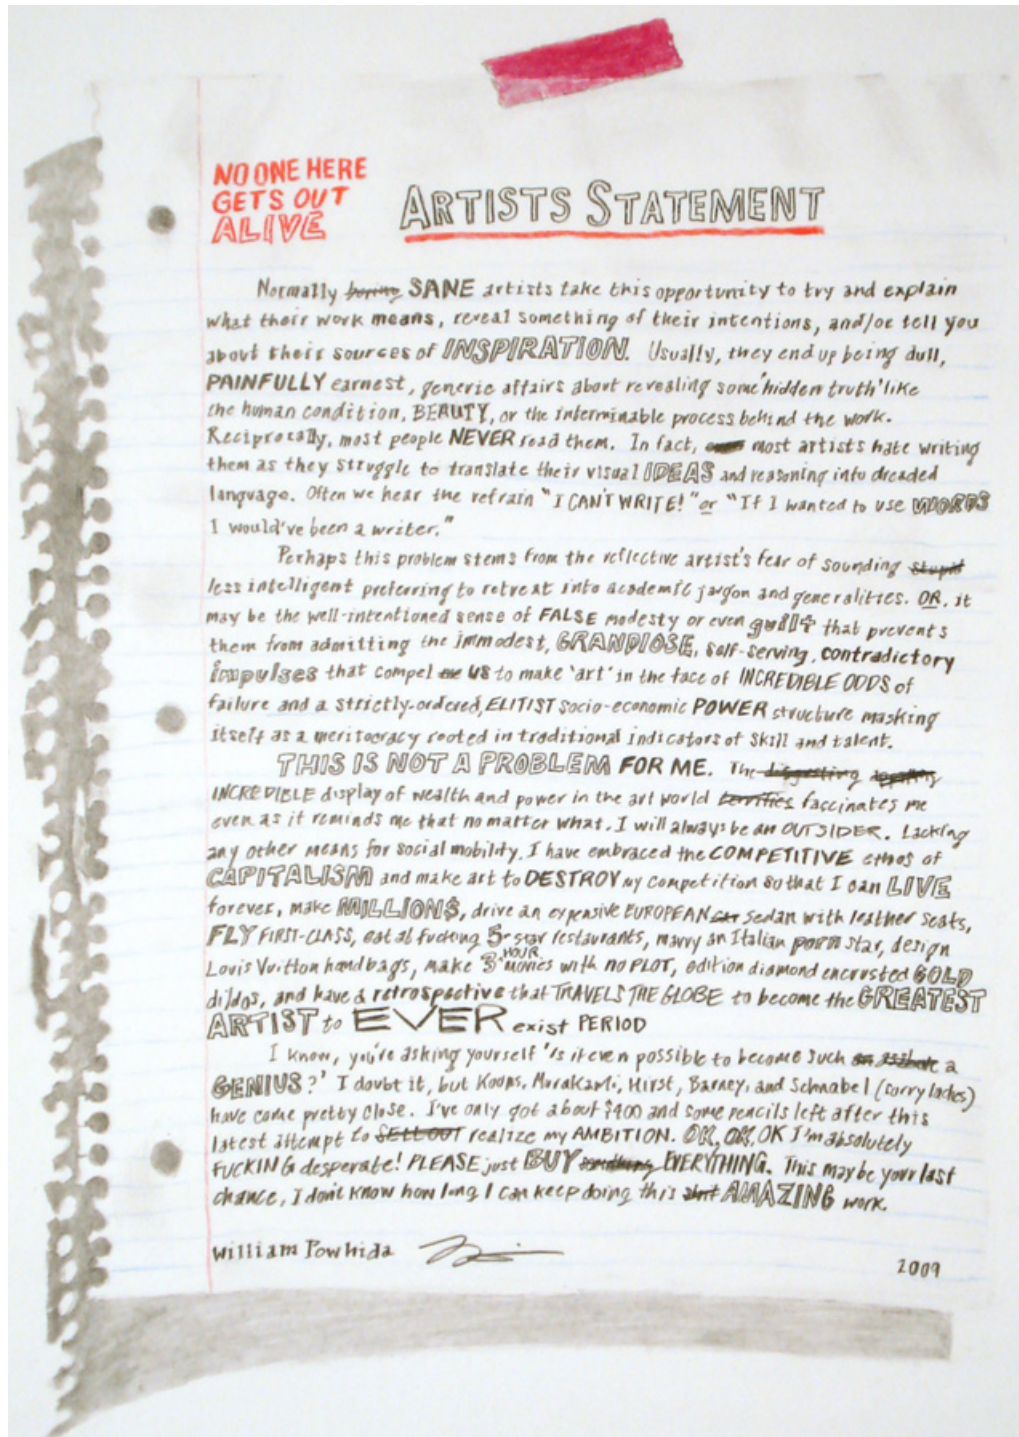 NO ONE HERE
GETS OUT
ALIVE
ARTISTS STATEMENT
Normally boring SANE artists take this opportunity to try and explain
what their work means, reveal something of their intentions, and/or tell you
about their sources of INSPIRATION. Usually, they end up being dull,
PAINFULLY earnest, generic affairs about revealing some 'hidden truth' like
the human condition, BEAUTY, or the interminable process behind the work.
Reciprocally, most people NEVER read them. In fact, most artists hate writing
them as they struggle to translate their visual IDEAS and reasoning into dreaded
language. Often we hear the refrain "I CAN'T WRITE!" or "If I wanted to use WORDS
I would've been a writer."
Perhaps this problem stems from the reflective artist's fear of sounding stupid
less intelligent preferring to retreat into academic jargon and generalities. OR, it
may be the well-intentioned sense of FALSE modesty or even guilt that prevents
them from admitting the immodest, GRANDIOSE, self-serving, contradictory
impulses that compel me us to make 'art' in the face of INCREDIBLE ODDS of
failure and a strictly-ordered, ELITIST socio-economic POWER structure masking
itself as a meritocracy rooted in traditional indicators of skill and talent.
THIS IS NOT A PROBLEM FOR ME. The disgusting appalling
INCREDIBLE display of wealth and power in the art world terrifies fascinates me
even as it reminds me that no matter what, I will always be an OUTSIDER. Lacking
any other means for social mobility, I have embraced the COMPETITIVE ethos of
CAPITALISM and make art to DESTROY my competition so that I can LIVE
forever, make MILLION$, drive an expensive EUROPEAN car sedan with leather seats,
FLY FIRST-CLASS, eat at fucking 5-star restaurants, marry an Italian porn star, design
Louis Vuitton handbags, make 3 HOUR movies with no PLOT, edition diamond encrusted GOLD
dildos, and have a retrospective that TRAVELS THE GLOBE to become the GREATEST
ARTIST to EVER exist PERIOD
I know, you're asking yourself 'is it even possible to become such an asshole a
GENIUS?' I doubt it, but Koons, Murakami, Hirst, Barney, and Schnabel (sorry ladies)
have come pretty close. I've only got about $400 and some pencils left after this
latest attempt to SELL OUT realize my AMBITION. OK, OK, OK I'm absolutely
FUCKING desperate! PLEASE just BUY something EVERYTHING. This may be your last
chance, I don't know how long I can keep doing this shit AMAZING work.
William Powhida
2009